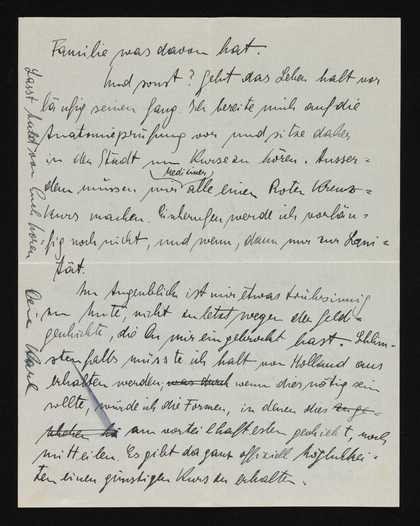 Familie was davon hat.
Und sonst? Geht das Leben halt vor
läufig seinen Gang. Ich bereite mich auf die
Anatomieprüfung vor und sitze daher
in der Stadt um Kurse an hören. Ausser-
Mediziner
dem müssen wir alle einen Roten Kreuz-
Kurs machen. Einberufen werde ich vorläu-
fig noch nicht, und wenn, dann nur zur Sani-
tät.
Im Augenblick ist mir etwas trübsinnig
zu Mute, nicht zuletzt wegen der Geld-
geschichte, die Du mir eingebrockt hast. Schlim-
stenfalls müsste ich halt von Holland aus
erhalten werden, was durch wenn dies nötig sein
sollte, würde ich die Formen, in denen dies
am vorteilhaftesten geschieht, noch
mitteilen. Es gibt da ganz offiziell Möglichkei-
ten einen günstigen Kurs zu erhalten.
Lasst bald von Euch hören